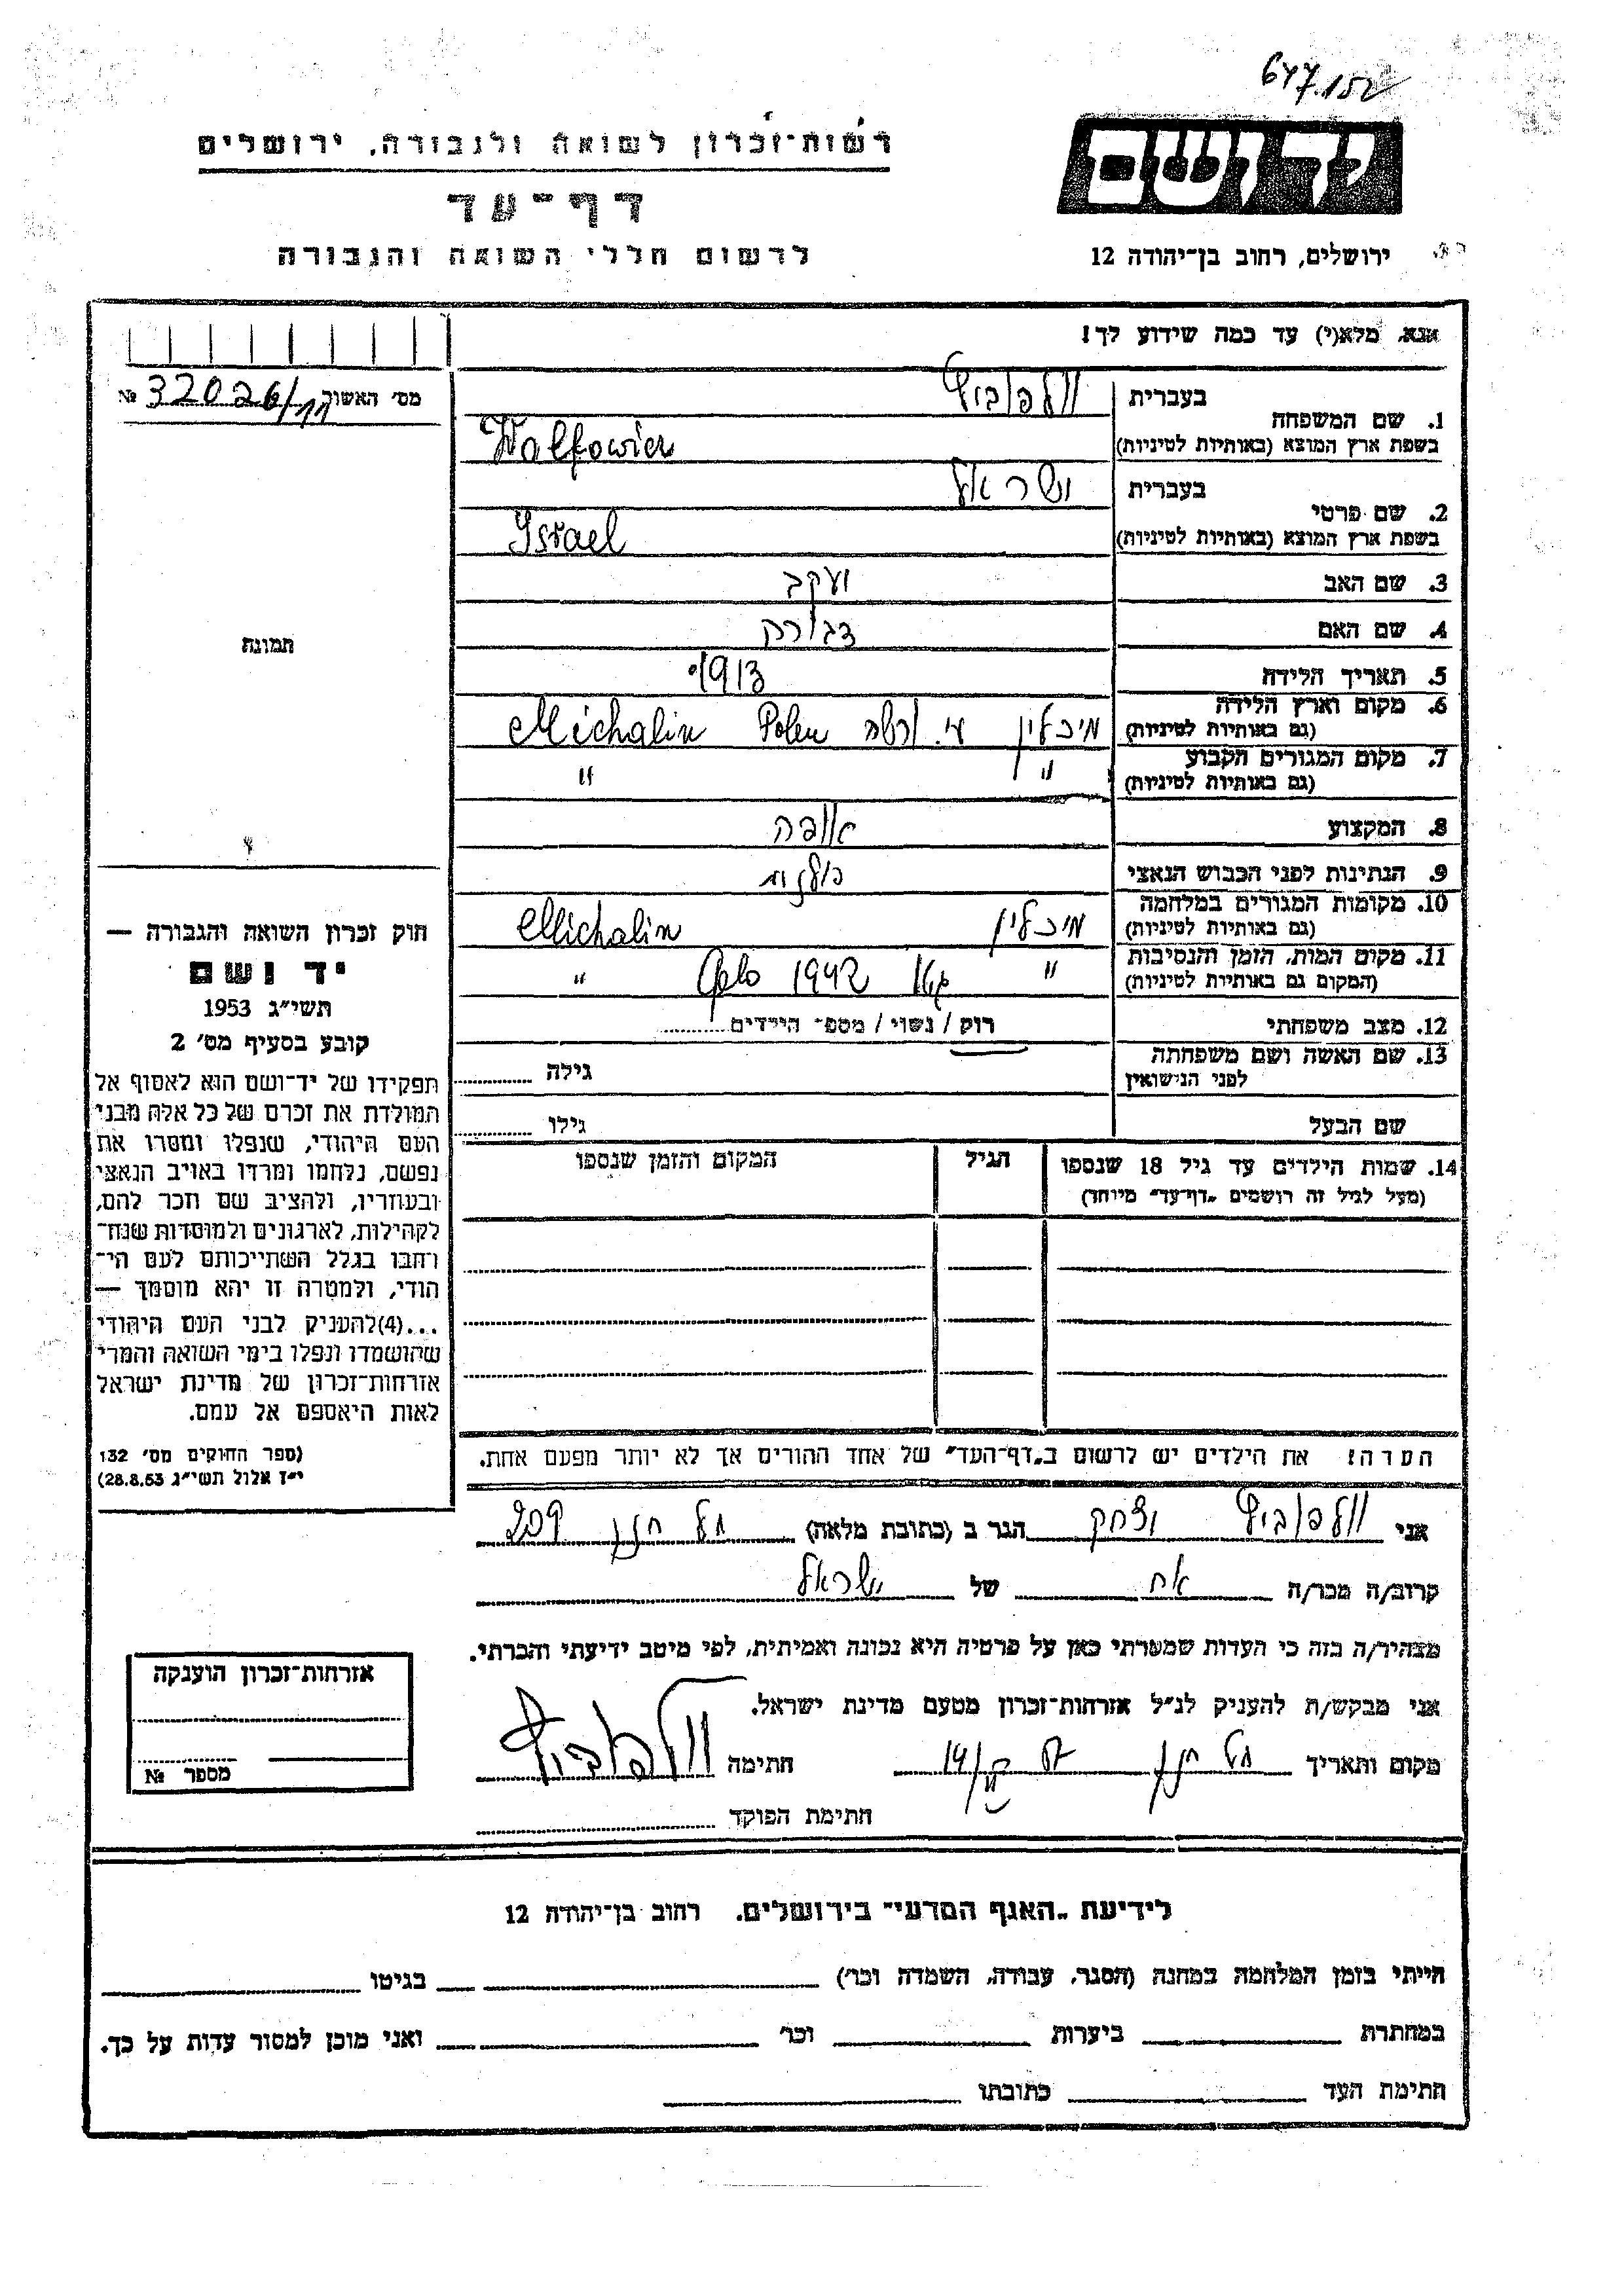 677.152
רשות־זכרון לשואה ולגבורה, ירושלים
יד ושם
דף־עד
לרשום חללי השואה והגבורה
ירושלים, רחוב בן־יהודה 12
אנא, מלא(י) עד כמה שידוע לך!
מס׳ האשור № 32026/11
בעברית וולפוביץ
1. שם המשפחה
בשפת ארץ המוצא (באותיות לטיניות) Walfowicz
בעברית ישראל
2. שם פרטי
בשפת ארץ המוצא (באותיות לטיניות) Israel
3. שם האב יעקב
4. שם האם
תמונה
5. תאריך הלידה 1913
6. מקום וארץ הלידה
(גם באותיות לטיניות) מיכלין ע״י Polen Michalin
7. מקום המגורים הקבוע
(גם באותיות לטיניות) " "
8. המקצוע אופה
9. הנתינות לפני הכבוש הנאצי פולנית
10. מקומות המגורים במלחמה
(גם באותיות לטיניות) מיכלין Michalin
11. מקום המות, הזמן והנסיבות
(המקום גם באותיות לטיניות) " 1942 "
12. מצב משפחתי רוק / נשוי / מספ־ הילדים
13. שם האשה ושם משפחתה
לפני הנישואין גילה
שם הבעל גילו
14. שמות הילדים עד גיל 18 שנספו הגיל המקום והזמן שנספו
(מעל לגיל זה רושמים „דף־עד״ מיוחד)
חוק זכרון השואה והגבורה —
יד ושם
תשי״ג 1953
קובע בסעיף מס׳ 2
תפקידו של יד־ושם הוא לאסוף אל
המולדת את זכרם של כל אלה מבני
העם היהודי, שנפלו ומסרו את
נפשם, נלחמו ומרדו באויב הנאצי
ובעוזריו, ולהציב שם וזכר להם,
לקהילות, לארגונים ולמוסדות שנח־
רבו בגלל השתייכותם לעם הי־
הודי, ולמטרה זו יהא מוסמך —
...(4) להעניק לבני העם היהודי
שהושמדו ונפלו בימי השואה והמרי
אזרחות־זכרון של מדינת ישראל
לאות היאספם אל עמם.
(ספר החוקים מס׳ 132
י״ז אלול תשי״ג 28.8.53)
הערה! את הילדים יש לרשום ב„דף־העד״ של אחד ההורים אך לא יותר מפעם אחת.
אני וולפוביץ יצחק הגר ב (כתובת מלאה) תל חנן 209
קרוב/ה מכר/ה אח של ישראל
מצהיר/ה בזה כי העדות שמסרתי כאן על פרטיה היא נכונה ואמיתית, לפי מיטב ידיעתי והכרתי.
אני מבקש/ת להעניק לנ״ל אזרחות־זכרון מטעם מדינת ישראל.
מקום ותאריך תל חנן חתימה וולפוביץ
חתימת הפוקד
אזרחות־זכרון הוענקה
מספר №
לידיעת „האגף המדעי״ בירושלים, רחוב בן־יהודה 12
הייתי בזמן המלחמה במחנה (הסגר, עבודה, השמדה וכו׳) בגיטו
במחתרת ביערות וכו׳ ואני מוכן למסור עדות על כך.
חתימת העד כתובתו